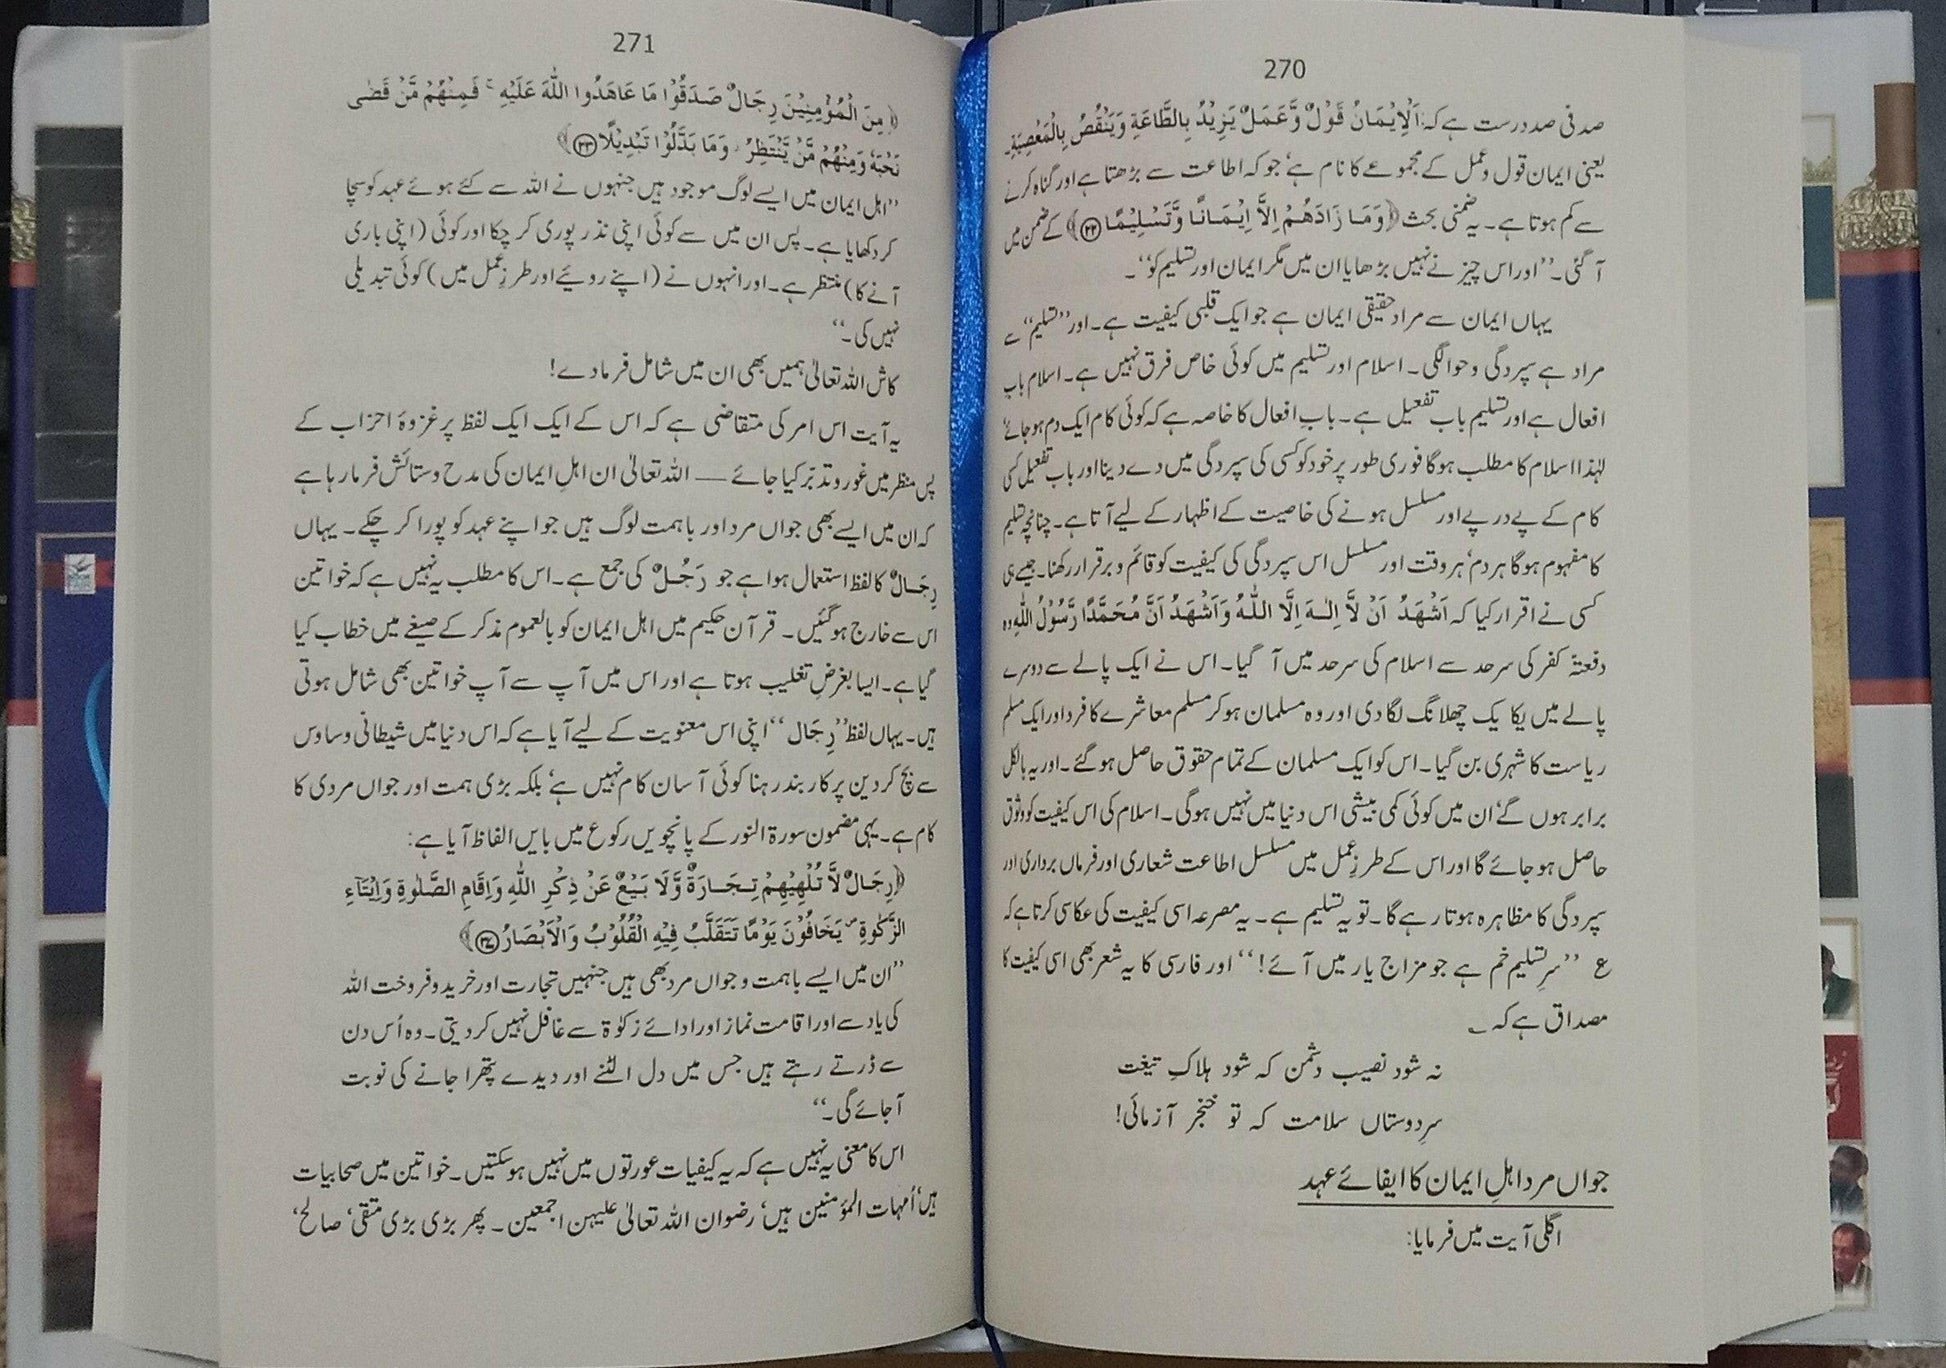 270
صد فی صد درست ہے کہ: اَلْاِیْمَانُ قَوْلٌ وَّعَمَلٌ یَزِیْدُ بِالطَّاعَۃِ وَیَنْقُصُ بِالْمَعْصِیَۃِ۔
یعنی ایمان قول و عمل کے مجموعے کا نام ہے‘ جو کہ اطاعت سے بڑھتا ہے اور گناہ کرنے
سے کم ہوتا ہے۔ یہ ضمنی بحث ﴿وَمَا زَادَھُمْ اِلَّا اِیْمَانًا وَّتَسْلِیْمًا ﴿۲۲﴾﴾ کے ضمن میں
آ گئی۔ ’’اور اس چیز نے نہیں بڑھایا ان میں مگر ایمان اور تسلیم کو‘‘۔
یہاں ایمان سے مراد حقیقی ایمان ہے جو ایک قلبی کیفیت ہے۔ اور ’’تسلیم‘‘ سے
مراد ہے سپردگی و حوالگی۔ اسلام اور تسلیم میں کوئی خاص فرق نہیں ہے۔ اسلام باب
افعال ہے اور تسلیم باب تفعیل ہے۔ باب افعال کا خاصہ ہے کہ کوئی کام ایک دم ہو جائے‘
لہٰذا اسلام کا مطلب ہو گا فوری طور پر خود کو کسی کی سپردگی میں دے دینا اور باب تفعیل کسی
کام کے پے در پے اور مسلسل ہونے کی خاصیت کے اظہار کے لیے آتا ہے۔ چنانچہ تسلیم
کا مفہوم ہو گا ہر دم‘ ہر وقت اور مسلسل اس سپردگی کی کیفیت کو قائم و برقرار رکھنا۔ جیسے ہی
کسی نے اقرار کیا کہ اَشْھَدُ اَنْ لَّا اِلٰـہَ اِلَّا اللّٰہُ وَاَشْھَدُ اَنَّ مُحَمَّدًا رَّسُوْلُ اللّٰہِ وہ
دفعتاً کفر کی سرحد سے اسلام کی سرحد میں آ گیا۔ اس نے ایک پالے سے دوسرے
پالے میں یکایک چھلانگ لگا دی اور وہ مسلمان ہو کر مسلم معاشرے کا فرد اور ایک مسلم
ریاست کا شہری بن گیا۔ اس کو ایک مسلمان کے تمام حقوق حاصل ہو گئے۔ اور یہ بالکل
برابر ہوں گے‘ ان میں کوئی کمی بیشی اس دنیا میں نہیں ہو گی۔ اسلام کی اس کیفیت کو وثوق
حاصل ہو جائے گا اور اس کے طرزِ عمل میں مسلسل اطاعت شعاری اور فرماں برداری اور
سپردگی کا مظاہرہ ہوتا رہے گا۔ تو یہ تسلیم ہے۔ یہ مصرعہ اسی کیفیت کی عکاسی کرتا ہے کہ
ع ’’سرِ تسلیم خم ہے جو مزاجِ یار میں آئے!‘‘ اور فارسی کا یہ شعر بھی اسی کیفیت کا
مصداق ہے کہ ؎
نہ شود نصیب دشمن کہ شود ہلاکِ تیغت
سرِ دوستاں سلامت کہ تو خنجر آزمائی!
جواں مرد اہلِ ایمان کا ایفائے عہد
اگلی آیت میں فرمایا:
271
﴿مِنَ الْمُؤْمِنِیْنَ رِجَالٌ صَدَقُوْا مَا عَاھَدُوا اللّٰہَ عَلَیْہِ ۚ فَمِنْھُمْ مَّنْ قَضٰی
نَحْبَہٗ وَمِنْھُمْ مَّنْ یَّنْتَظِرُ ۖ وَمَا بَدَّلُوْا تَبْدِیْلًا ﴿۲۳﴾﴾
’’اہل ایمان میں ایسے لوگ موجود ہیں جنہوں نے اللہ سے کئے ہوئے عہد کو سچا
کر دکھایا ہے۔ پس ان میں سے کوئی اپنی نذر پوری کر چکا اور کوئی (اپنی باری
آنے کا) منتظر ہے۔ اور انہوں نے (اپنے رویئے اور طرزِ عمل میں) کوئی تبدیلی
نہیں کی۔‘‘
کاش اللہ تعالیٰ ہمیں بھی ان میں شامل فرما دے!
یہ آیت اس امر کی متقاضی ہے کہ اس کے ایک ایک لفظ پر غزوۂ احزاب کے
پس منظر میں غور و تدبّر کیا جائے — اللہ تعالیٰ ان اہلِ ایمان کی مدح و ستائش فرما رہا ہے
کہ ان میں ایسے بھی جواں مرد اور باہمت لوگ ہیں جو اپنے عہد کو پورا کر چکے۔ یہاں
رِجَالٌ کا لفظ استعمال ہوا ہے جو رَجُلٌ کی جمع ہے۔ اس کا مطلب یہ نہیں ہے کہ خواتین
اس سے خارج ہو گئیں۔ قرآن حکیم میں اہل ایمان کو بالعموم مذکر کے صیغے میں خطاب کیا
گیا ہے۔ ایسا بغرضِ تغلیب ہوتا ہے اور اس میں آپ سے آپ خواتین بھی شامل ہوتی
ہیں۔ یہاں لفظ ’’رِجَال‘‘ اپنی اس معنویت کے لیے آیا ہے کہ اس دنیا میں شیطانی وساوس
سے بچ کر دین پر کاربند رہنا کوئی آسان کام نہیں ہے‘ بلکہ بڑی ہمت اور جواں مردی کا
کام ہے۔ یہی مضمون سورۃ النور کے پانچویں رکوع میں بایں الفاظ آیا ہے:
﴿رِجَالٌ لَّا تُلْھِیْھِمْ تِجَارَۃٌ وَّلَا بَیْعٌ عَنْ ذِکْرِ اللّٰہِ وَاِقَامِ الصَّلٰوۃِ وَاِیْتَآءِ
الزَّکٰوۃِ ۙ یَخَافُوْنَ یَوْمًا تَتَقَلَّبُ فِیْہِ الْقُلُوْبُ وَالْاَبْصَارُ ﴿۳۷﴾﴾
’’ان میں ایسے باہمت و جواں مرد بھی ہیں جنہیں تجارت اور خرید و فروخت اللہ
کی یاد سے اور اقامت نماز اور ادائے زکوٰۃ سے غافل نہیں کر دیتی۔ وہ اُس دن
سے ڈرتے رہتے ہیں جس میں دل الٹنے اور دیدے پتھرا جانے کی نوبت
آ جائے گی۔‘‘
اس کا معنی یہ نہیں ہے کہ یہ کیفیات عورتوں میں نہیں ہو سکتیں۔ خواتین میں صحابیات
ہیں‘ اُمہات المؤمنین ہیں‘ رضوان اللہ تعالیٰ علیہن اجمعین۔ پھر بڑی بڑی متقی‘ صالح‘